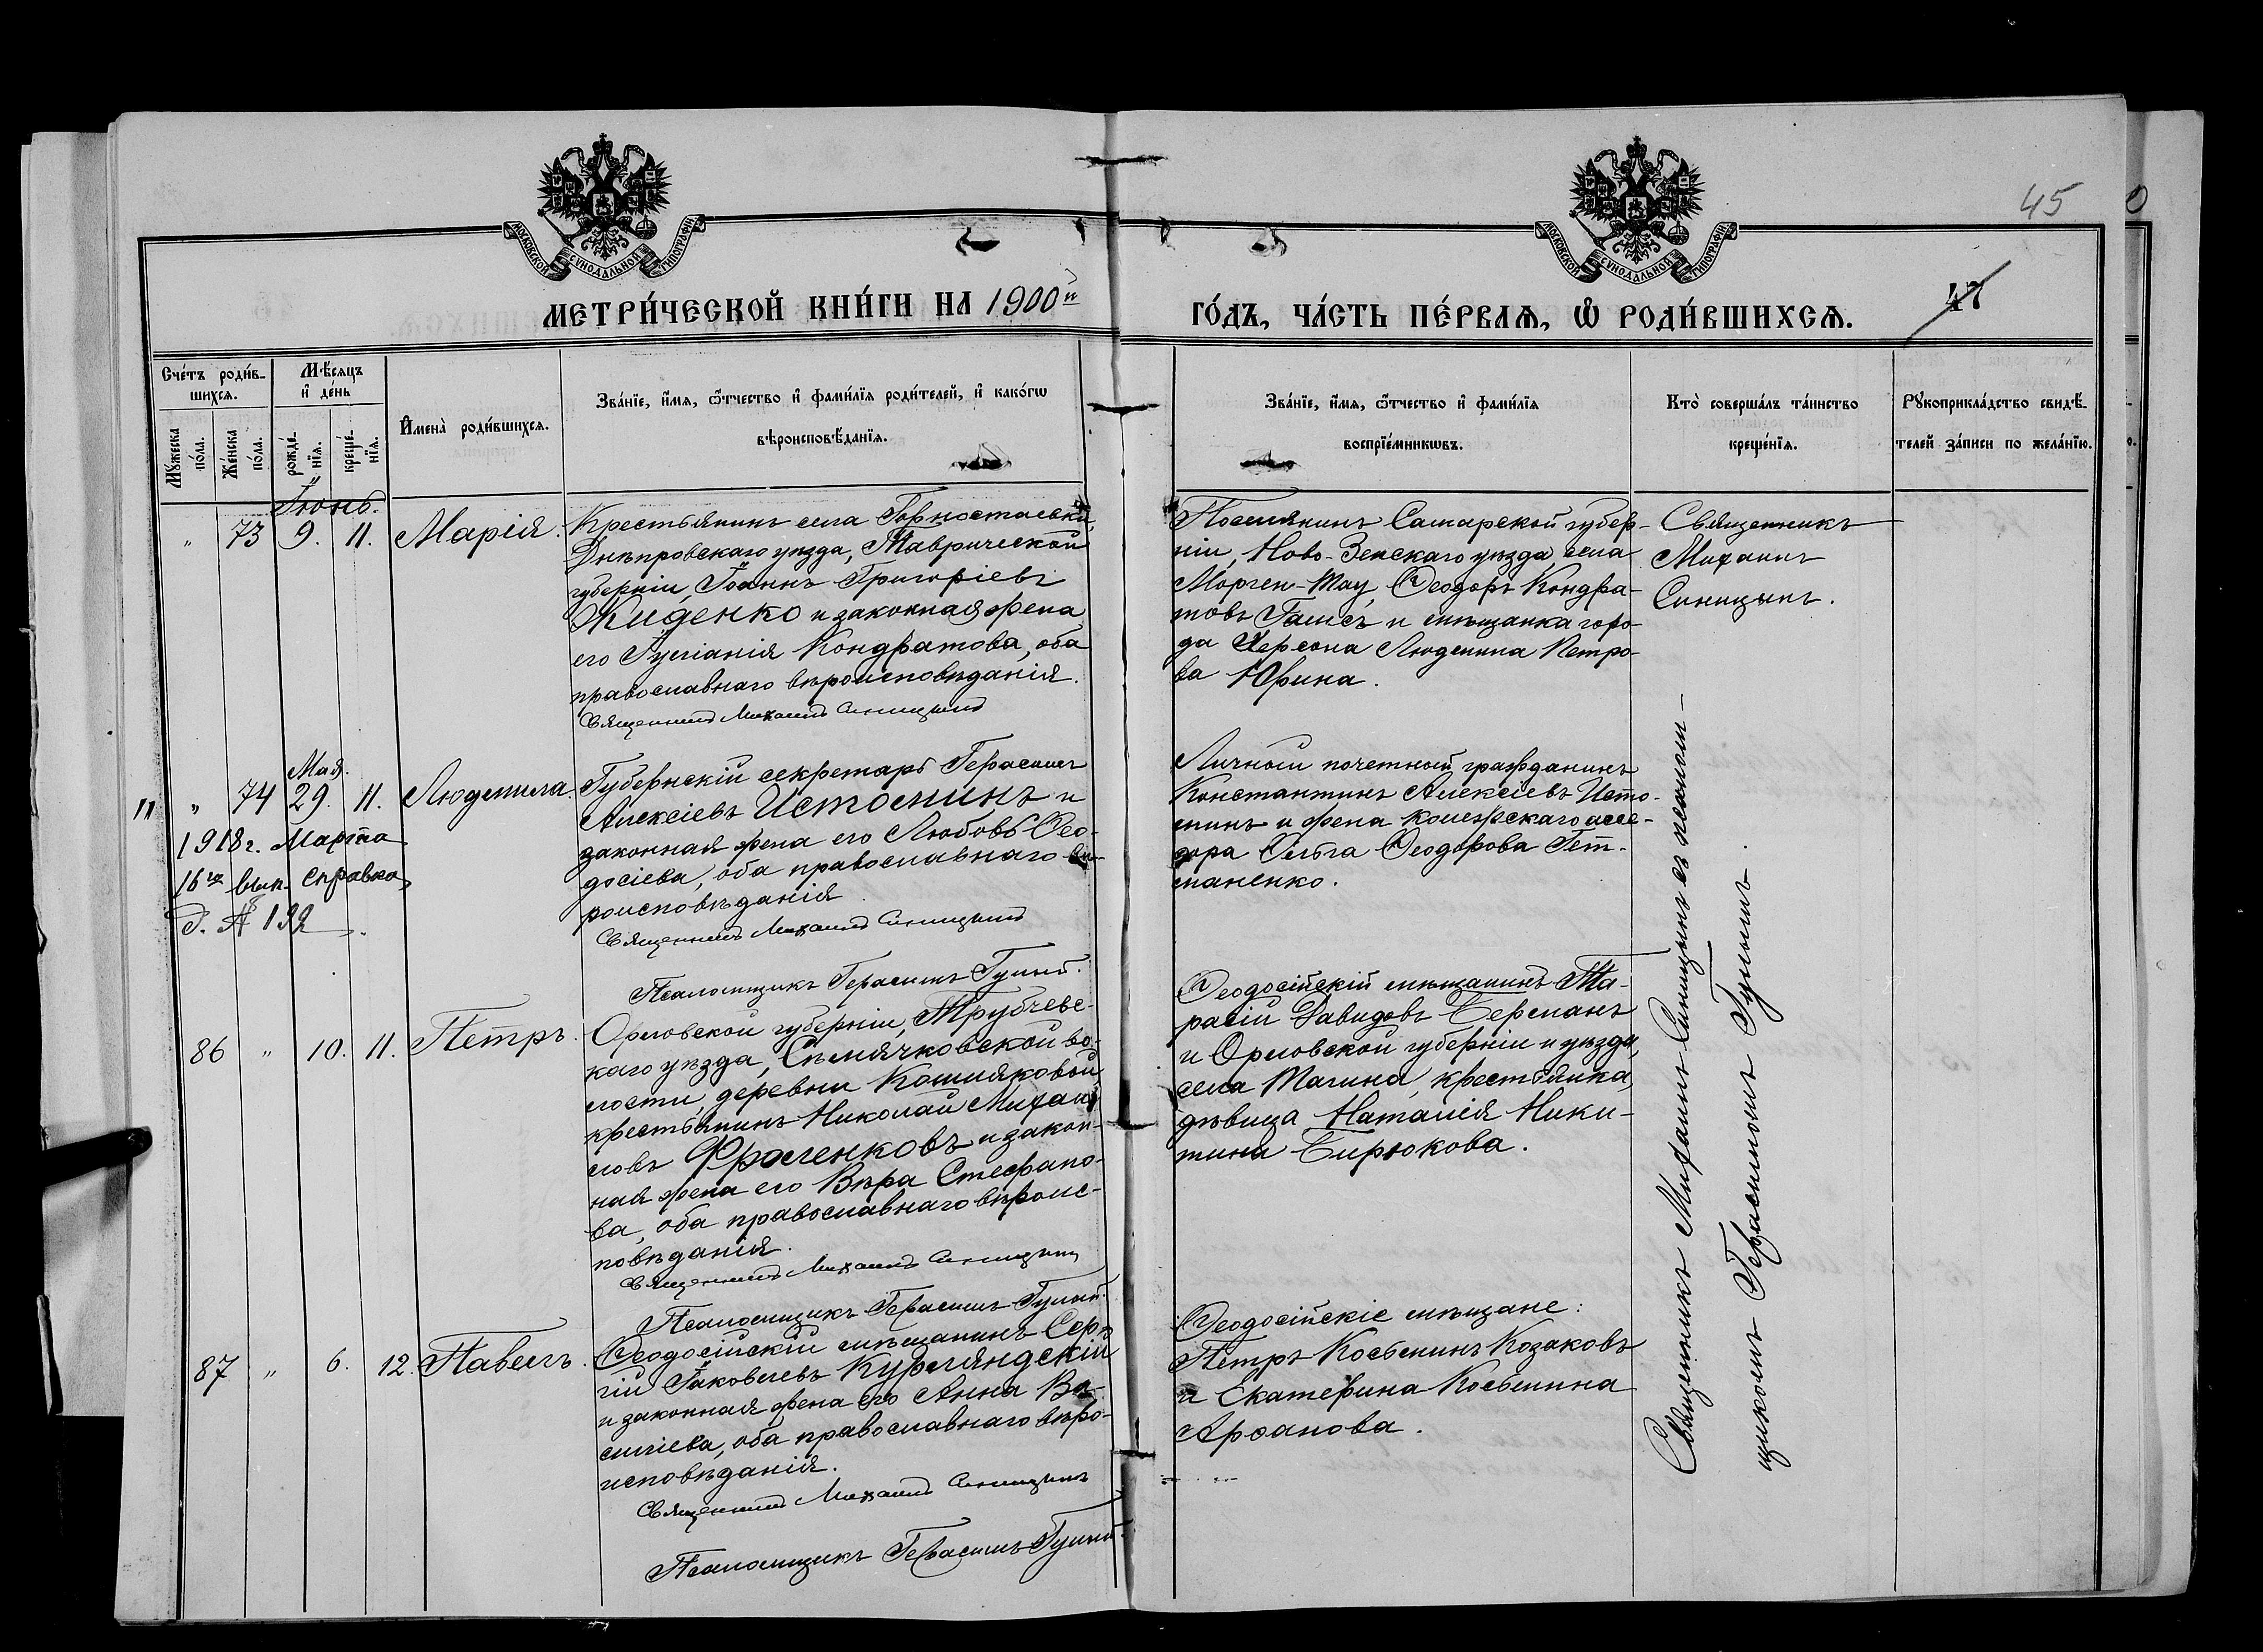 45
МОСКОВСКОЙ СУНОДАЛЬНОЙ ТИПОГРАФІИ
МОСКОВСКОЙ СУНОДАЛЬНОЙ ТИПОГРАФІИ
МЕТРИ́ЧЕСКОЙ КНИ́ГИ НА 1900й
ГО́ДЪ, ЧА́СТЬ ПЕ́РВАѦ, Ѡ РОДИ́ВШИХСѦ.
47
Сче́тъ роди́в-
шихсѧ.
Мꙋ́жеска по́ла.
Же́нска по́ла.
Мѣ́сѧцъ
и҆ де́нь
рожде́-
нїѧ.
креще́-
нїѧ.
И҆мена̀ роди́вшихсѧ.
Зва́нїе, и҆́мѧ, ѻ҆́тчество и҆ фами́лїѧ роди́телей, и҆ како́гѡ
вѣроисповѣ́данїѧ.
Зва́нїе, и҆́мѧ, ѻ҆́тчество и҆ фами́лїѧ
воспрїе́мникѡвъ.
Кто̀ соверша́лъ та́инство
креще́нїѧ.
Рꙋкоприкла́дство свидѣ́-
телей за́писи по жела́нїю.
Іюнь.
" 73 9. 11. Марія.
Крестьянинъ села Горностаевки,
Днѣпровскаго уѣзда, Таврической
губерніи, Іоаннъ Григоріевъ
Жиденко и законная жена
его Іуліанія Кондратова, оба
православнаго вѣроисповѣданія.
Священникъ Михаилъ Синицынъ
Поселянинъ Самарской губер-
ніи, Ново-Зенскаго уѣзда, села
Морген-Тау, Ѳеодоръ Кондра-
товъ Гаисъ и мѣщанка горо-
да Херсона Людмила Петро-
ва Юрина.
Священникъ
Михаилъ
Синицынъ.
Мая.
" 74 29. 11. Людмила.
1918г. Марта
16го вып. справка
№ 132
Губернскій секретарь Герасимъ
Алексіевъ Истоминъ и
законная жена его Любовь Ѳео-
досіева, оба православнаго вѣ-
роисповѣданія
Священникъ Михаилъ Синицынъ
Псаломщикъ Герасимъ Гулый.
Личной почетной гражданинъ
Константинъ Алексіевъ Исто-
минъ и жена коллежскаго ассе-
зора Ольга Ѳеодорова Гет-
маненко.
86 " 10. 11. Петръ.
Орловской губерніи, Трубчевс-
каго уѣзда, Сѣмячковской во-
лости, деревни Кошляковой,
крестьянинъ Николай Михаи-
ловъ Фроленковъ и закон-
ная жена его Вѣра Стефано-
ва, оба православнаго вѣроис-
повѣданія.
Священникъ Михаилъ Синицынъ
Псаломщикъ Герасимъ Гулый.
Ѳеодосійскій мѣщанинъ Та-
расій Давидовъ Берманъ
и Орловской губерніи и уѣзда,
села Тагина, крестьянка,
дѣвица Наталія Ники-
тина Бирюкова.
87 " 6. 12. Павелъ.
Ѳеодосійскій мѣщанинъ Сер-
гій Іаковлевъ Курляндскій
и законная жена его Анна Ва-
силіева, оба православнаго вѣро-
исповѣданія.
Священникъ Михаилъ Синицынъ
Псаломщикъ Герасимъ Гулый.
Ѳеодосійскіе мѣщане:
Петръ Косьминъ Козаковъ
и Екатерина Косьмина
Арѳанова.
Священникъ Михаилъ Синицынъ съ псалом-
щикомъ Герасимомъ Гулымъ.